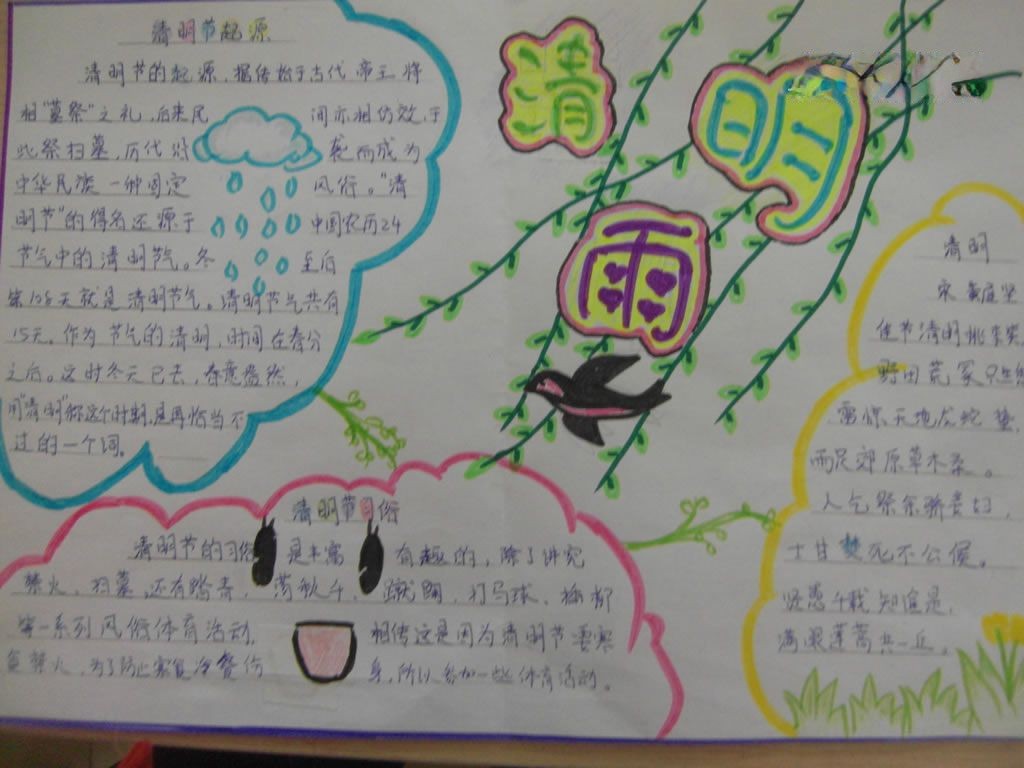 清明节起源
清明节的起源，据传始于古代帝王将
相"墓祭"之礼，后来民间亦相仿效，于
此祭扫墓，历代沿袭而成为
中华民族一种固定风俗。"清
明节"的得名还源于中国农历24
节气中的清明节气。冬至后
第108天就是清明节气。清明节气共有
15天。作为节气的清明，时间在春分
之后。这时冬天已去，春意盎然，
用"清明"称这个时期，是再恰当不
过的一个词。
清明雨
清明节习俗
清明节的习俗是丰富有趣的，除了讲究
禁火、扫墓，还有踏青、荡秋千、蹴鞠、打马球、插柳
等一系列风俗体育活动。相传这是因为清明节要寒
食禁火，为了防止寒食冷餐伤身，所以参加一些体育活动。
清明
宋 黄庭坚
佳节清明桃李笑，
野田荒冢只
雷惊天地龙蛇蛰，
雨足郊原草木柔。
人乞祭余骄妾妇，
士甘焚死不公侯。
贤愚千载知谁是，
满眼蓬蒿共一丘。